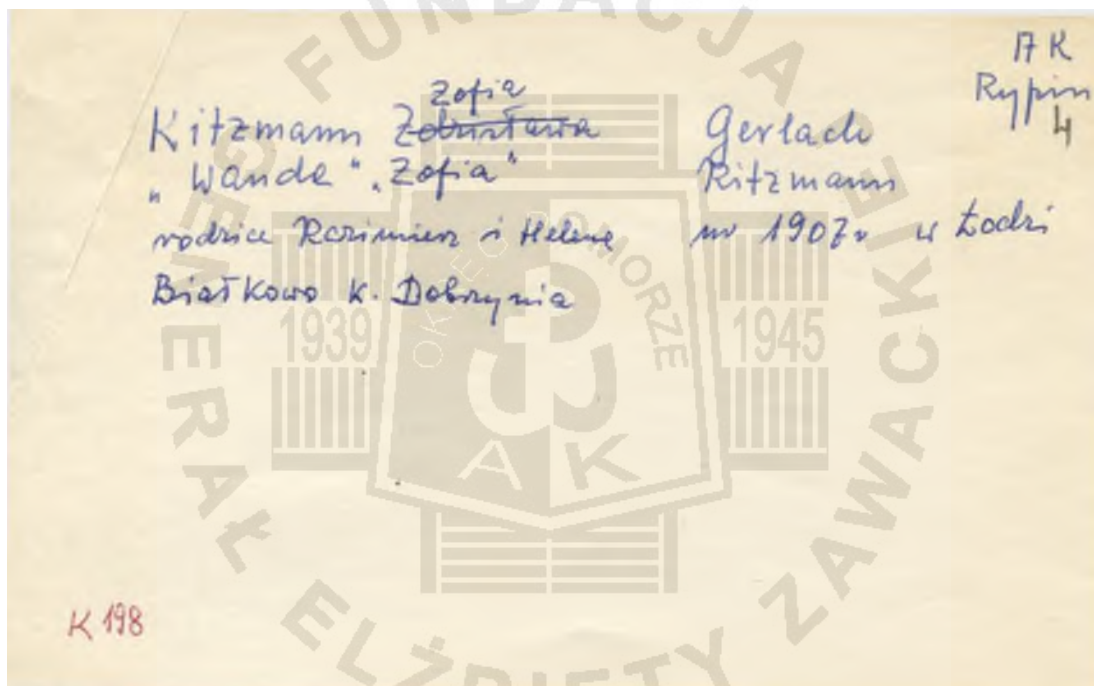 AK
Rypin
4
Zofia
Kitzmann Zdzisława Gerlach
"Wanda" "Zofia" Kitzmann
rodzice Kazimierz i Helena ur 1907 r w Łodzi
Białkowo k. Dobrzynia
K 198
FUNDACJA
GENERAŁ ELŻBIETY ZAWACKIEJ
OKRĘG POMORZE
1939 1945
AK